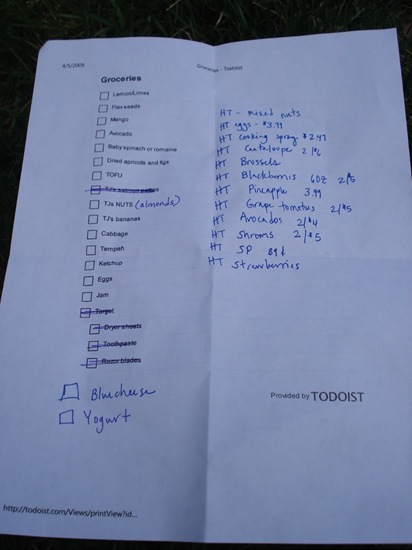 4/5/2009
Groceries - Todoist
Groceries
Lemon/Limes
Flaxseeds
Mango
Avocado
Baby spinach or romaine
Dried apricots and figs
TOFU
TJ's salmon patties
TJs NUTS (almonds)
TJ's bananas
Cabbage
Tempeh
Ketchup
Eggs
Jam
Target
Dryer sheets
Toothpaste
Razor blades
Bluecheese
Yogurt
HT - mixed nuts
HT eggs - $3.99
HT Cooking spray $2.47
HT Cantaloupe 2/$6
HT Brussels
HT Blackberries 6oz 2/$5
HT Pineapple 3.99
HT Grape tomatoes 2/$5
HT Avocados 2/$4
HT Shrooms 2/$5
HT SP 89¢
HT Strawberries
Provided by TODOIST
http://todoist.com/Views/printView?id...